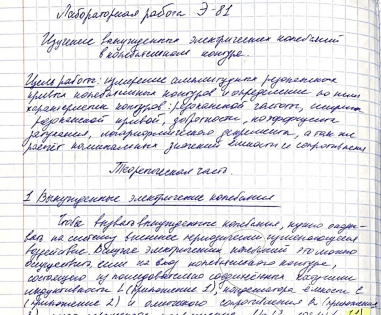 Лабораторная работа Э-81
Изучение вынужденных электрических колебаний
в колебательном контуре.
Цель работы: измерение амплитудных резонансных
кривых колебательных контуров и определение по ним
характеристик контуров: резонансной частоты, ширины
резонансной кривой, добротности, коэффициента
затухания, логарифмического декремента, а так же
расчёт номинальных значений ёмкости и сопротивления
Теоретическая часть.
1 Вынужденные электрические колебания
Чтобы вызвать вынужденные колебания, нужно оказы-
вать на систему внешнее периодически изменяющееся
воздействие. В случае электрических колебаний это можно
осуществить, если на вход колебательного контура,
состоящего из последовательно соединённых катушки
индуктивности L (приложение 1) конденсатора ёмкости C
(приложение 2) и омического сопротивления R (приложение